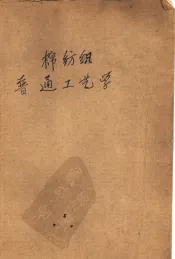 棉纺组
普通工艺学